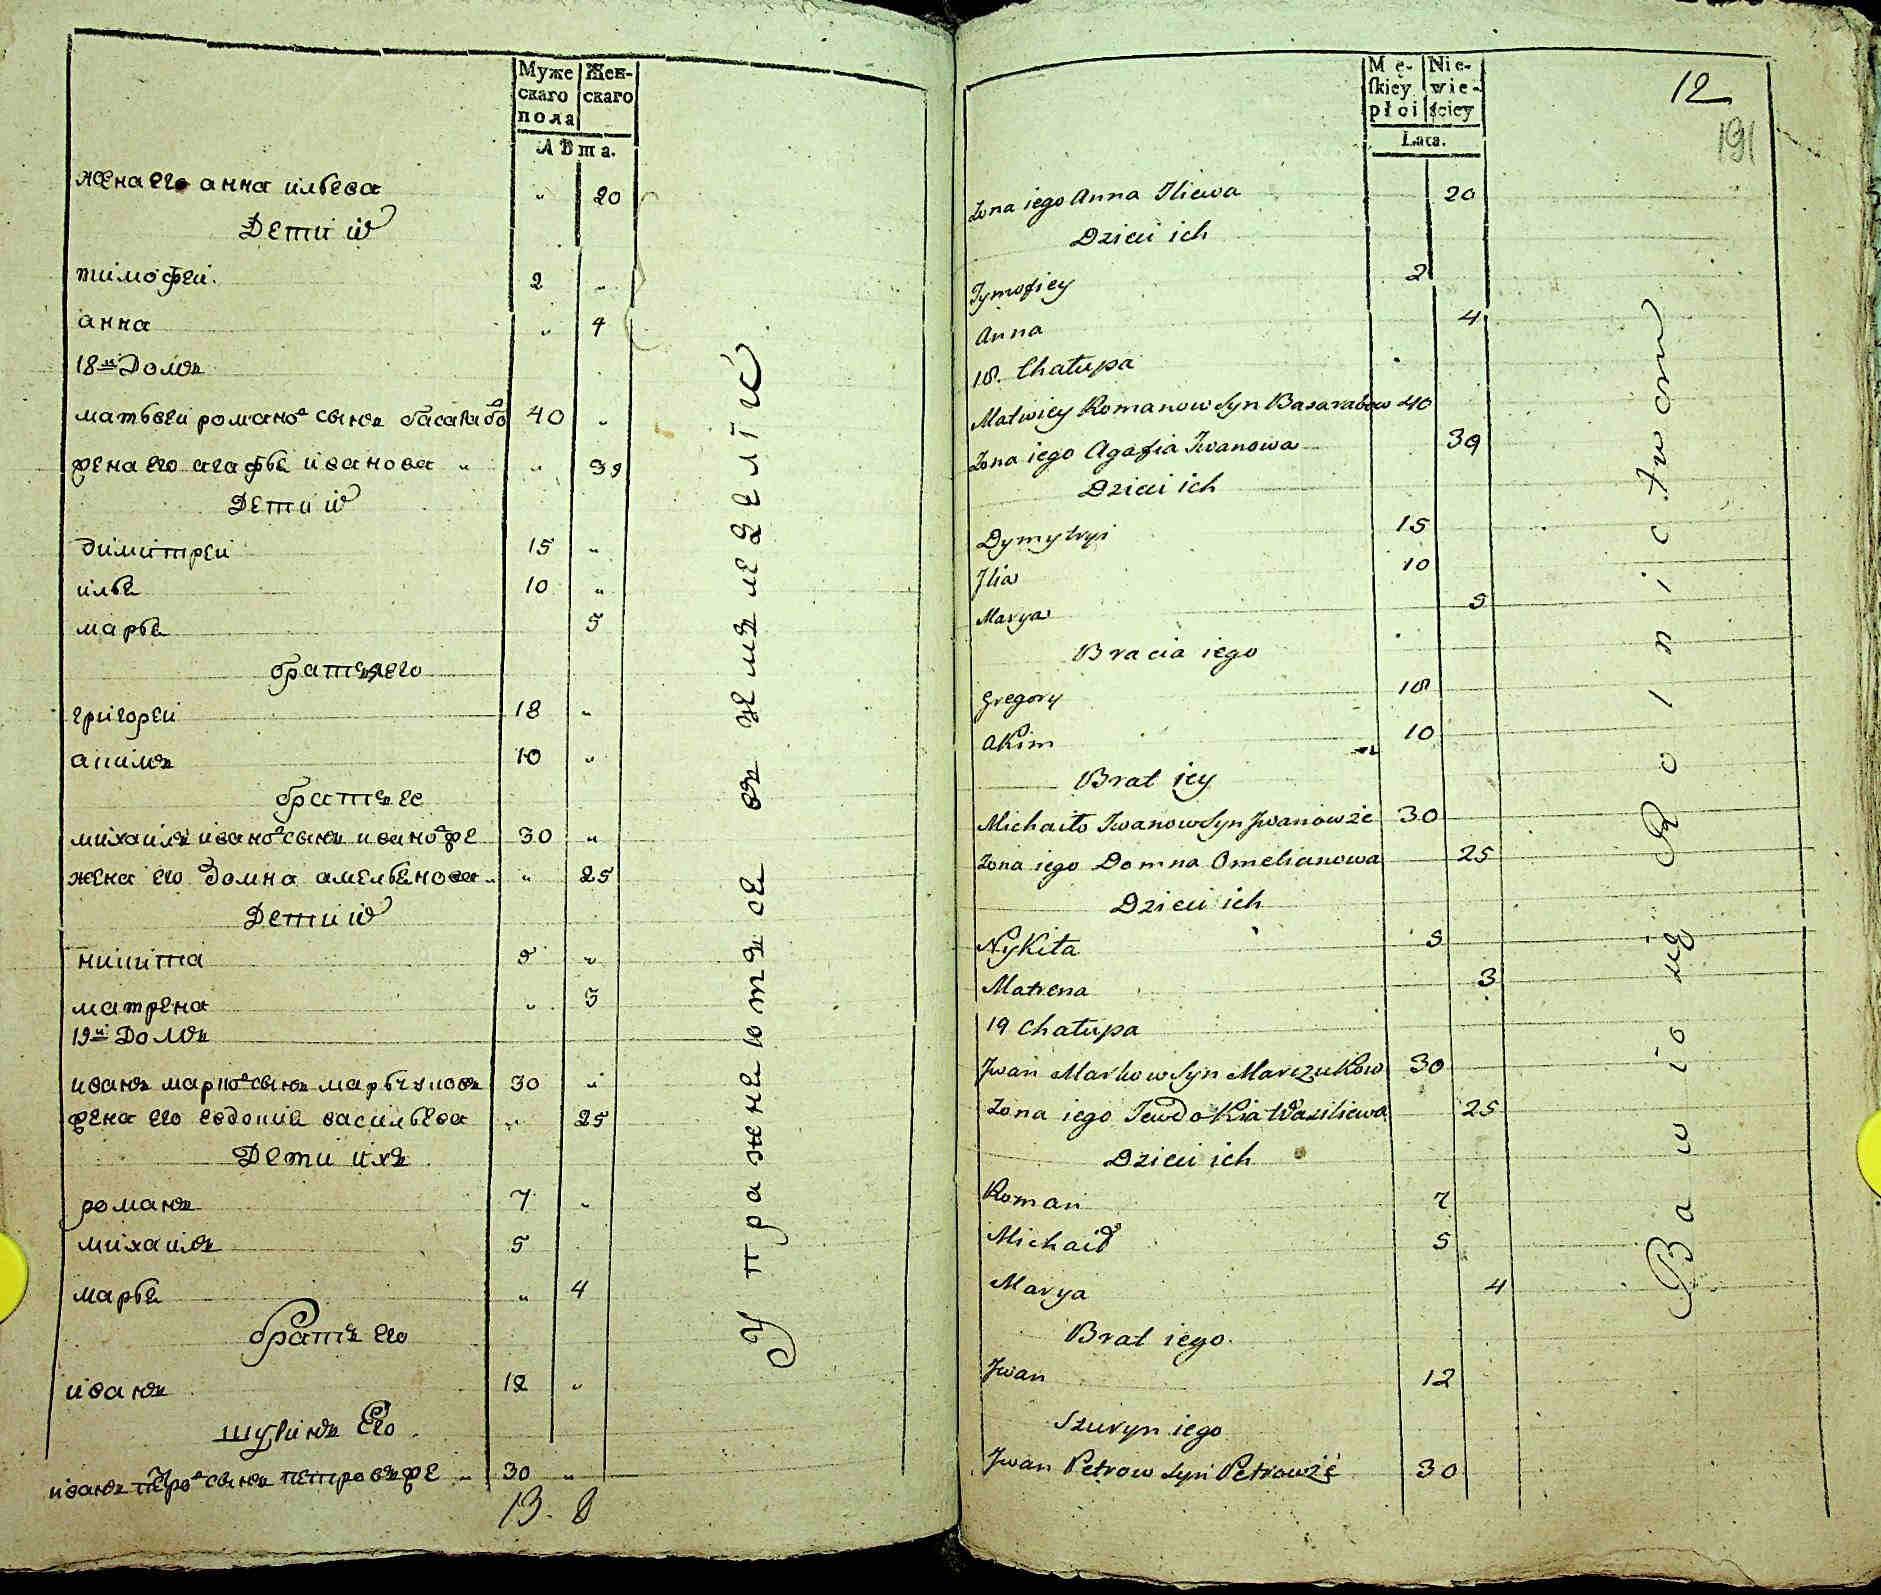 Муже Жен-
скаго скаго
пола
Лѣта.
жена его анна ильева " 20
Дети их
тимофеи. 2 "
анна " 4
18й Домъ
матвеи романов сынъ басарабов 40 "
жена его агафья иванова " " 39
Дети их
димитреи 15 "
илья 10 "
марья 5
братья его
григореи 18 "
акимъ 10 "
братъ ее
михаилъ иванов сынъ иванов же 30 "
жена его домна амельянова " " 25
Дети их
никита 5 "
матрена " 3
19й Домъ
иванъ марков сынъ марчуковъ 30 "
жена его евдокия васильева " 25
Дети ихъ
романъ 7 "
михаилъ 5
марья " 4
братъ его
иванъ 12 "
шуринъ Его
иванъ петров сынъ петровъ же " 30 "
13. 8
Упражняются въ земледелги
Mę- Nie-
skiey wie-
płci ściey
Lata.
12
191
Zona iego Anna Iliewa 20
Dzieci ich
Tymofiey 2
Anna 4
18. Chałupa
Matwiey Romanow Syn Basarabow 40
Zona iego Agafia Iwanowa 39
Dzieci ich
Dymytryi 15
Ilia 10
Marya 5
Bracia iego
Gregory 18
Akim 10
Brat iey
Michaiło Iwanow Syn Iwanowże 30
Zona iego Domna Omelianowa 25
Dzieci ich
Nykita 5
Matrena 3
19 Chałupa
Iwan Markow Syn Marczukow 30
Zona iego Iewdokia Wasiliewa 25
Dzieci ich
Roman 7
Michaił 5
Marya 4
Brat iego
Iwan 12
Szuryn iego
Iwan Petrow Syn Petrowże 30
Bawią się Rolnictwem